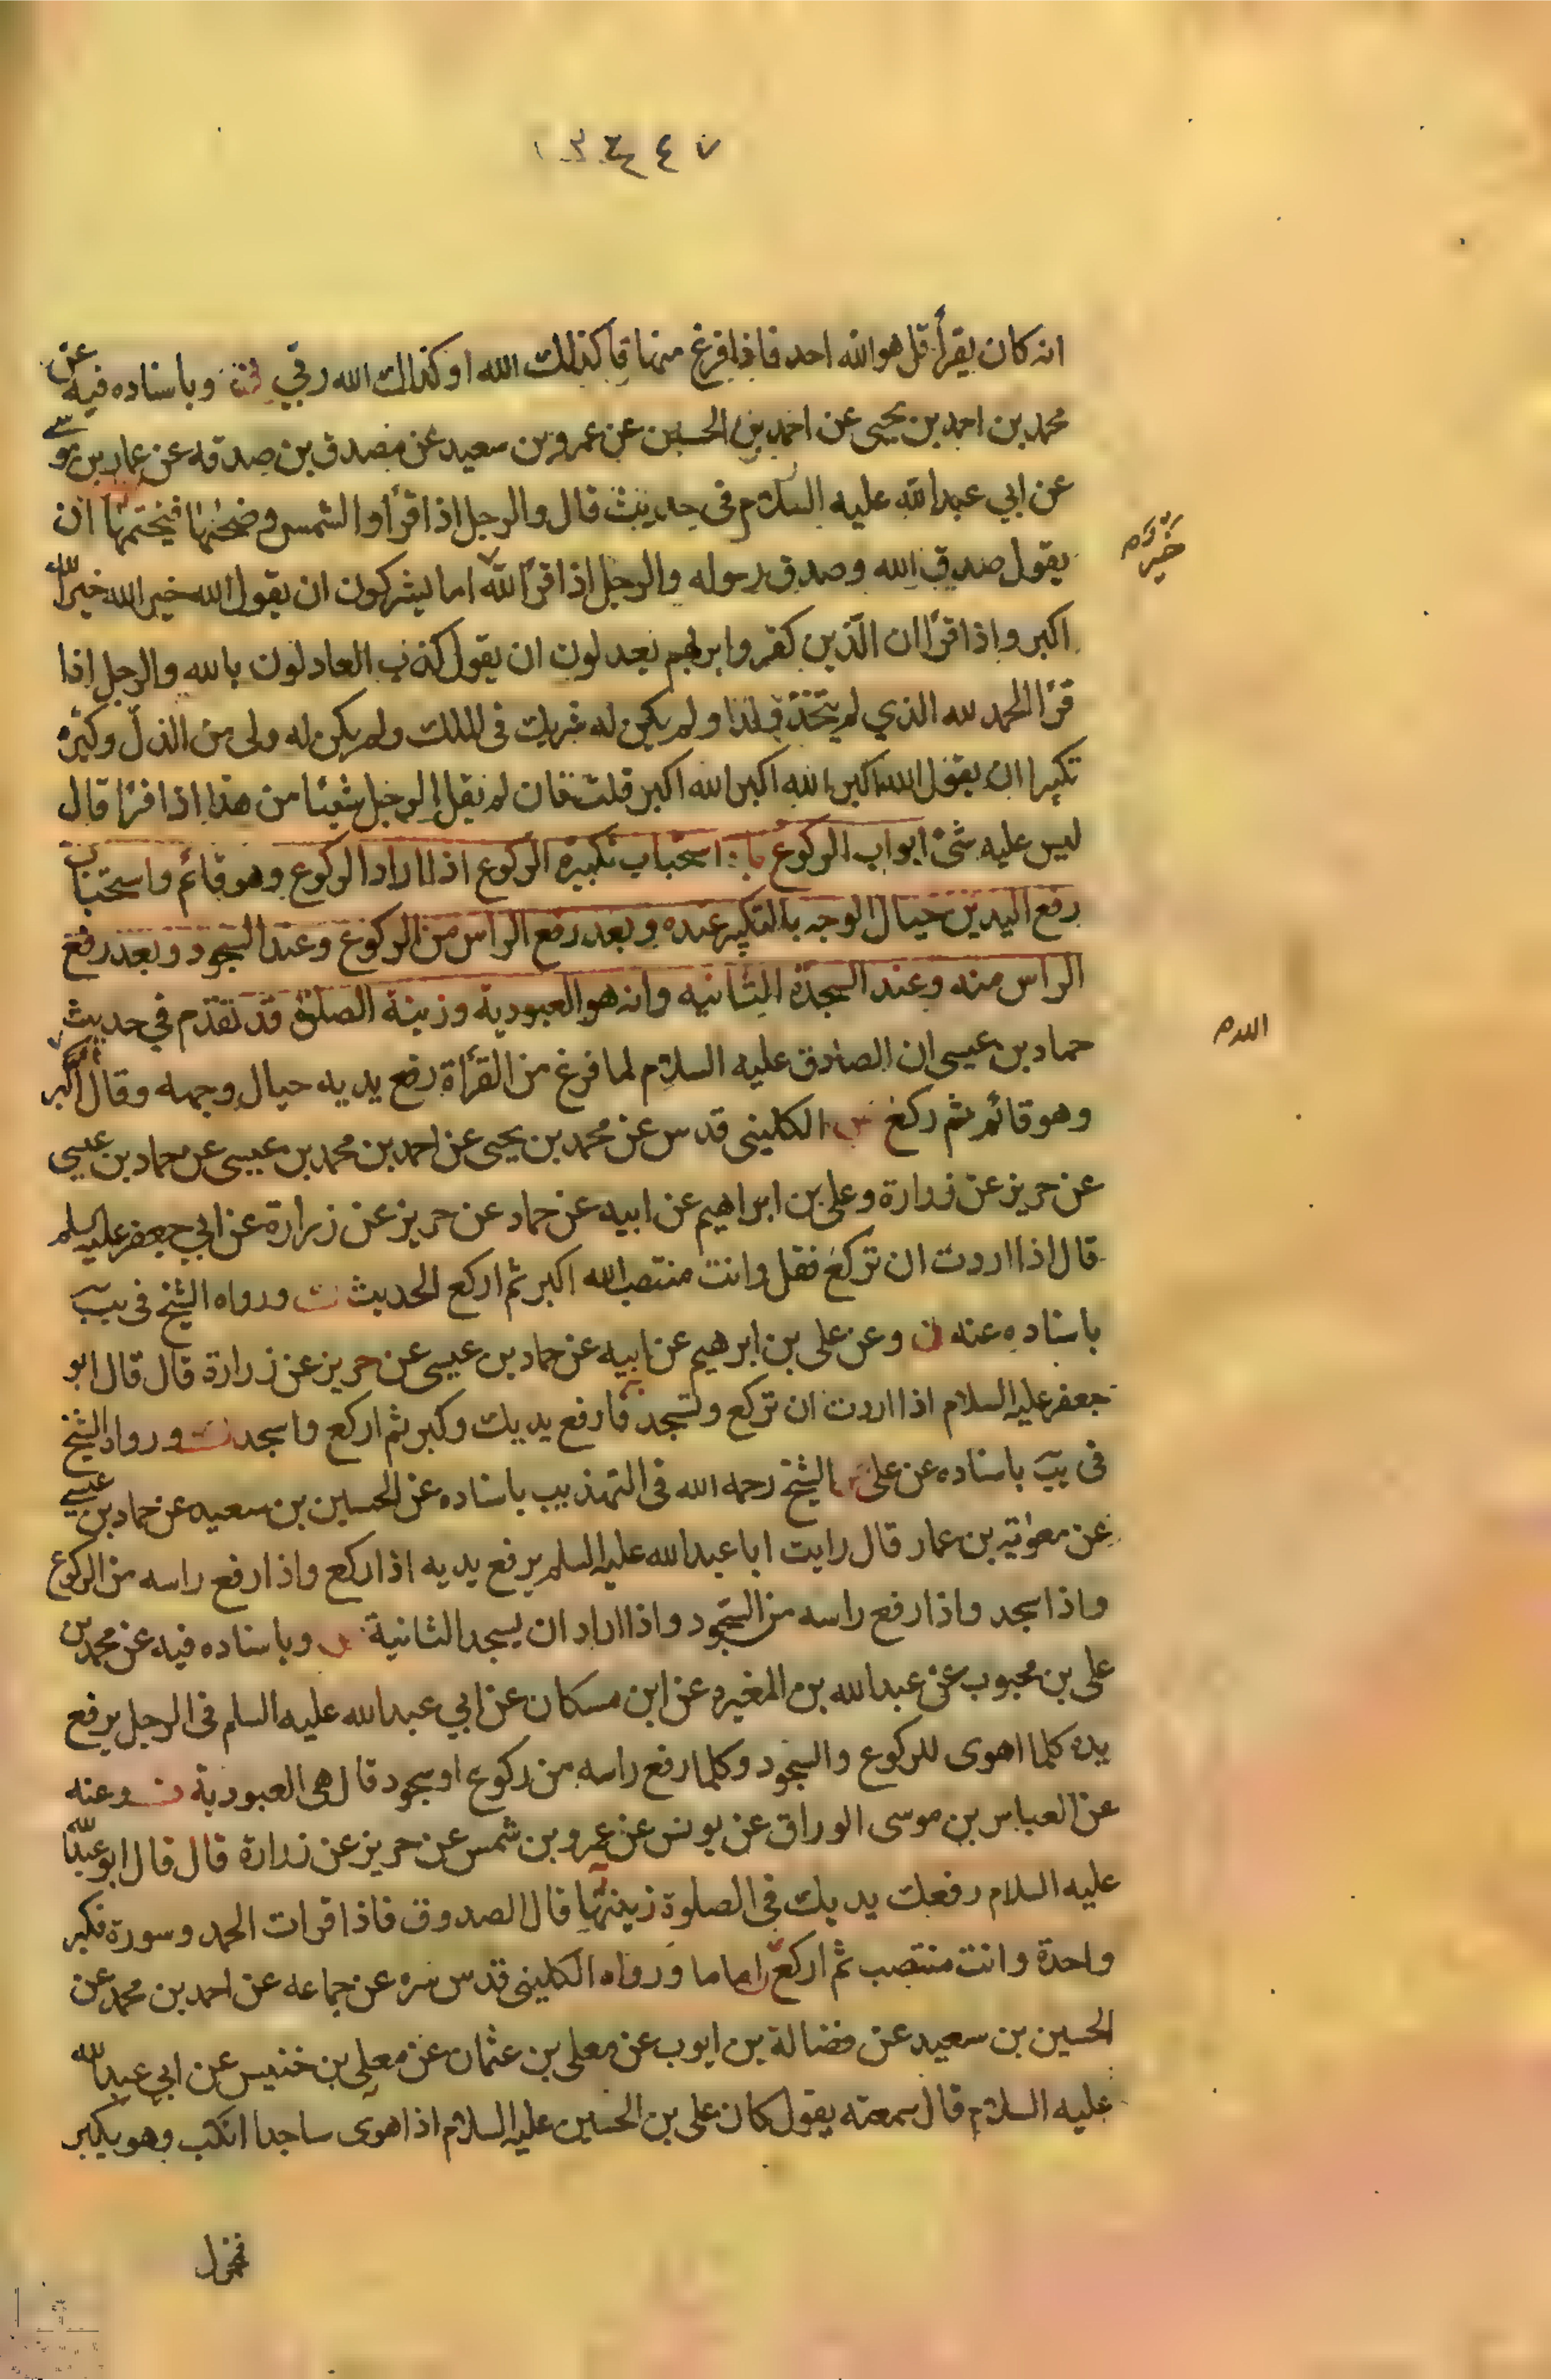 انه كان يقرأ قل هو الله احد فاذا فرغ منها قا كذلك الله او كذلك الله ربي وباسناده فيه عن
محمد بن احمد بن يحيى عن احمد بن الحسين عن عمرو بن سعيد عن مصدق بن صدقه عن عمار بن موسى
عن ابي عبد الله عليه السلام في حديث قال والرجل اذا قرأ والشمس وضحها فيختمها ان
يقول صدق الله وصدق رسوله والرجل اذا قرأ الله اما يشركون ان يقول الله خير الله خير الله
خير
اكبر واذا قرأ ان الذين كفروا بربهم يعدلون ان يقول كذب العادلون بالله والرجل اذا
قرأ الحمد لله الذي لم يتخذ ولدا ولم يكن له شريك في الملك ولم يكن له ولى من الذل وكبره
تكبيرا ان يقول الله اكبر الله اكبر الله اكبر قلت فان لم يقل الرجل شيئا من هذا اذا قرأ قال
ليس عليه شئ ابواب الركوع با استحباب تكبيرة الركوع اذا اراد الركوع وهو قائم واستحباب
رفع اليدين حيال الوجه بالتكبير عنده وبعد رفع الراس من الركوع وعند السجود وبعد رفع
الراس منه وعند السجدة الثانيه وانه هو العبودية وزينة الصلوة قد تقدم في حديث
حماد بن عيسى ان الصادق عليه السلام لما فرغ من القرأة رفع يديه حيال وجهه وقال اكبر
وهو قائم ثم ركع الكليني قدس عن محمد بن يحيى عن احمد بن محمد بن عيسى عن حماد بن عيسى
عن حريز عن زرارة وعلى بن ابراهيم عن ابيه عن حماد عن حريز عن زرارة عن ابي جعفر عليه السلم
قال اذا اردت ان تركع فقل وانت منتصب الله اكبر ثم اركع الحديث ورواه الشيخ في يب
باسناده عنه وعن على بن ابرهيم عن ابيه عن حماد بن عيسى عن حريز عن زرارة قال قال ابو
جعفر عليه السلام اذا اردت ان تركع وتسجد فارفع يديك وكبر ثم اركع واسجد ورواه الشيخ
في يب باسناده عن على الشيخ رحمه الله في التهذيب باسناده عن الحسين بن سعيد عن حماد بن عيسى
عن معوية بن عمار قال رايت ابا عبد الله عليه السلم يرفع يديه اذا ركع واذا رفع راسه من الركوع
واذا سجد واذا رفع راسه من السجود واذا اراد ان يسجد الثانية وباسناده فيه عن محمد بن
على بن محبوب عن عبد الله بن المغيره عن ابن مسكان عن ابي عبد الله عليه السلم في الرجل يرفع
يده كلما اهوى للركوع والسجود وكلما رفع راسه من ركوع او سجود قال هي العبودية وعنه
عن العباس بن موسى الوراق عن يونس عن عمرو بن شمس عن حريز عن زرارة قال قال ابو عبد الله
عليه السلام رفعك يديك في الصلوة زينتها قال الصدوق فاذا قرات الحمد وسورة فكبر
واحدة وانت منتصب ثم اركع واما ما ورواه الكليني قدس سره عن جماعه عن احمد بن محمد عن
الحسين بن سعيد عن فضالة بن ايوب عن معلى بن عثمان عن معلى بن خنيس عن ابي عبد الله
عليه السلام قال سمعته يقول كان على بن الحسين عليه السلام اذا اهوى ساجدا انكب وهو يكبر